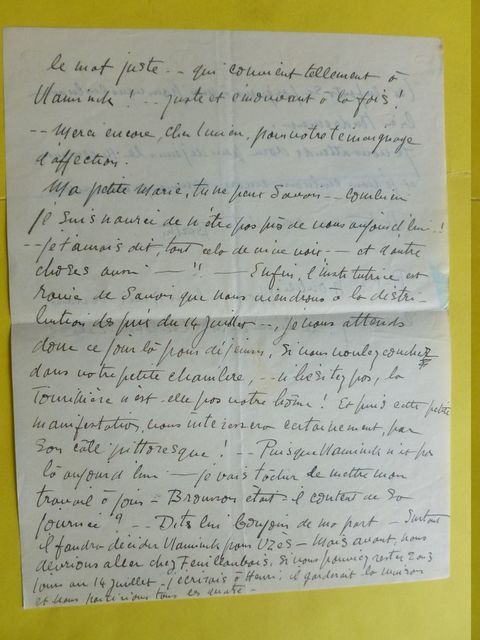 le mot juste -- qui convient tellement à
Vlaminck ! -- juste et émouvant à la fois !
-- Merci encore, cher Lucien, pour votre témoignage
d'affection.
Ma petite Marie, tu ne peux savoir -- combien
je suis de n'être pas près de vous aujourd'hui !
-- je t'aurais dit, tout cela de vive voix -- et d'autre
choses aussi — !! — Enfin, l'institutrice est
ravie de savoir que vous viendrez à la distri-
bution des prix du 14 Juillet --, je vous attends
donc ce jour là pour déjeuner, si vous voulez coucher
dans votre petite chambre, -- n'hésitez pas, la
Tourillière n'est-elle pas votre home ! Et puis cette petite
manifestation, vous intéressera certainement, par
son côté pittoresque ! -- Puisque Vlaminck n'est pas
là aujourd'hui — je vais tâcher de mettre mon
travail à jour - était-il content de sa
journée ? -- Dites lui bonjour de ma part — Surtout
il faudra décider Vlaminck pour Uzès - Mais avant, nous
devrions aller chez . Si vous pouviez rester 2 ou 3
jours au 14 Juillet - j'écrirais à Henri ; il garderait la maison
et nous partirions tous les quatre -